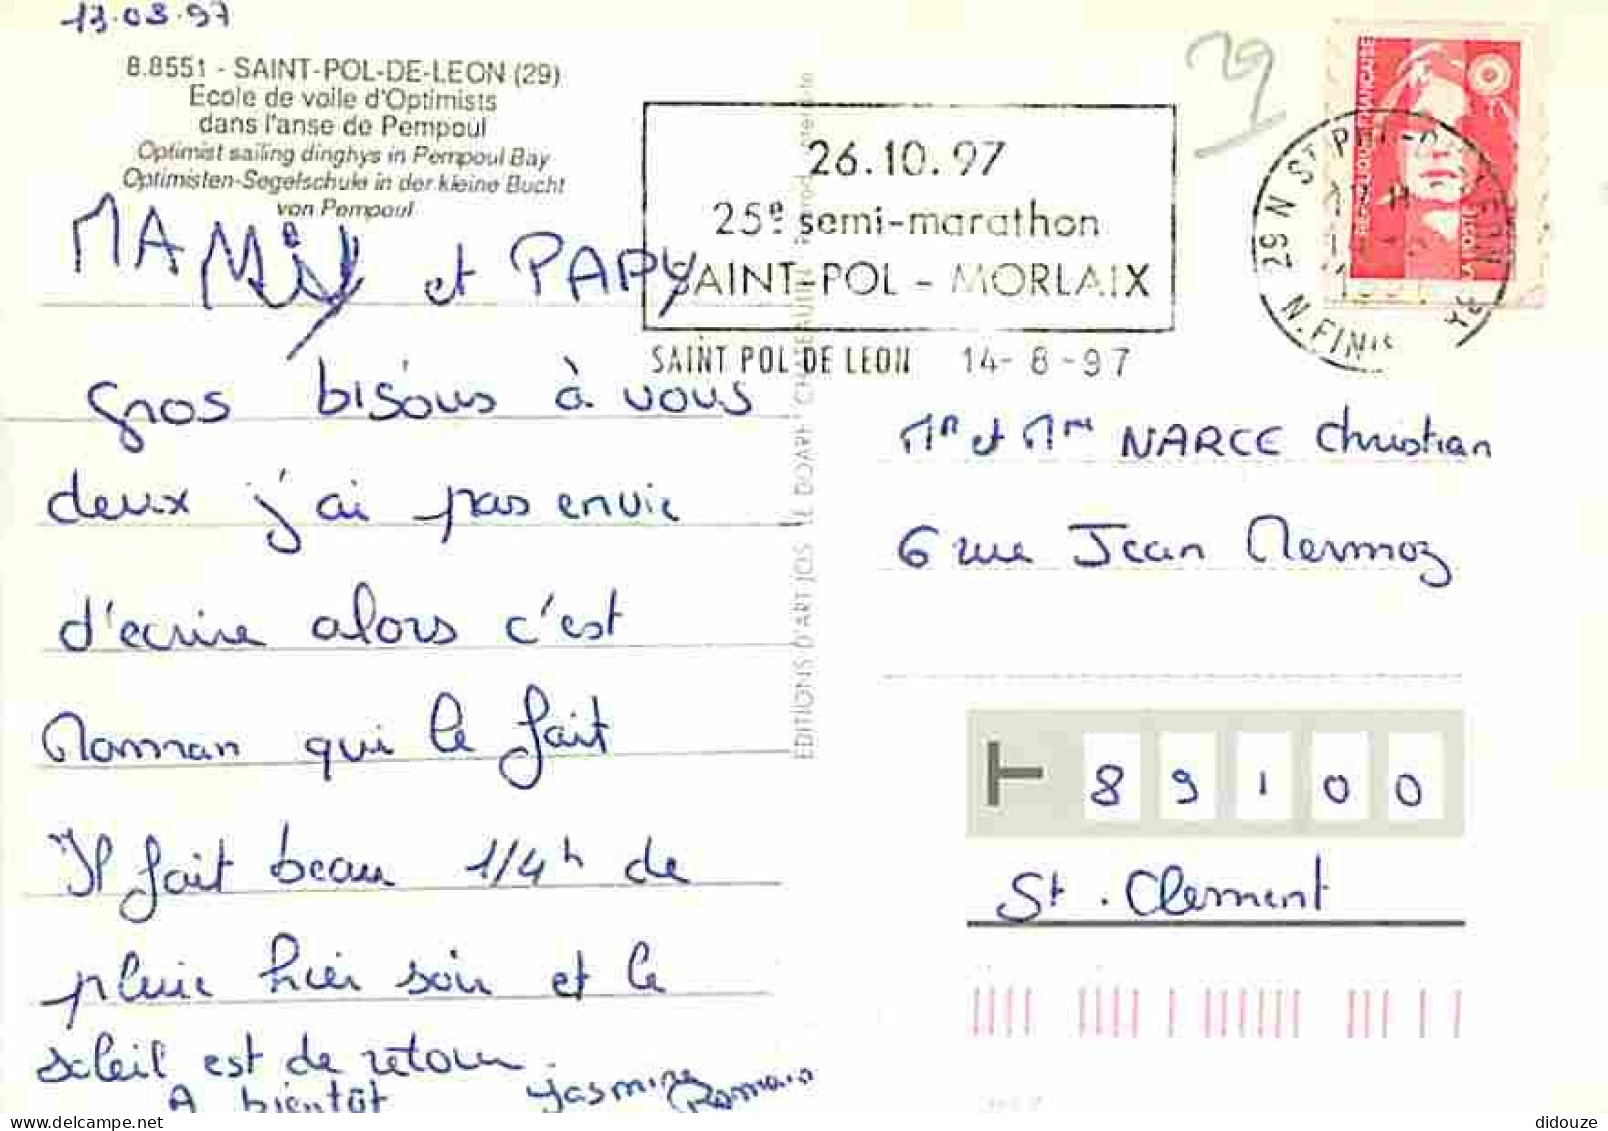 13.08.97
8.8551 - SAINT-POL-DE-LEON (29)
Ecole de voile d'Optimists
dans l'anse de Pempoul
Optimist sailing dinghys in Pempoul Bay
Optimisten-Segelschule in der kleine Bucht
von Pempoul
MAMie et PAPY
gros bisous à vous
deux j'ai pas envie
d'écrire alors c'est
Maman qui le fait
Il fait beau 1/4h de
pluie hier soir et le
soleil est de retour.
A bientôt Yasmine Romain
EDITIONS D'ART JOS LE DOARE CHATEAULIN
29
26.10.97
25e semi-marathon
SAINT-POL - MORLAIX
SAINT POL DE LEON 14-8-97
REPUBLIQUE FRANÇAISE
LA POSTE
29 N ST POL-DE-LEON
N. FINIS
Mr et Mme NARCE Christian
6 rue Jean Mermoz
89100
St. Clement
didouze